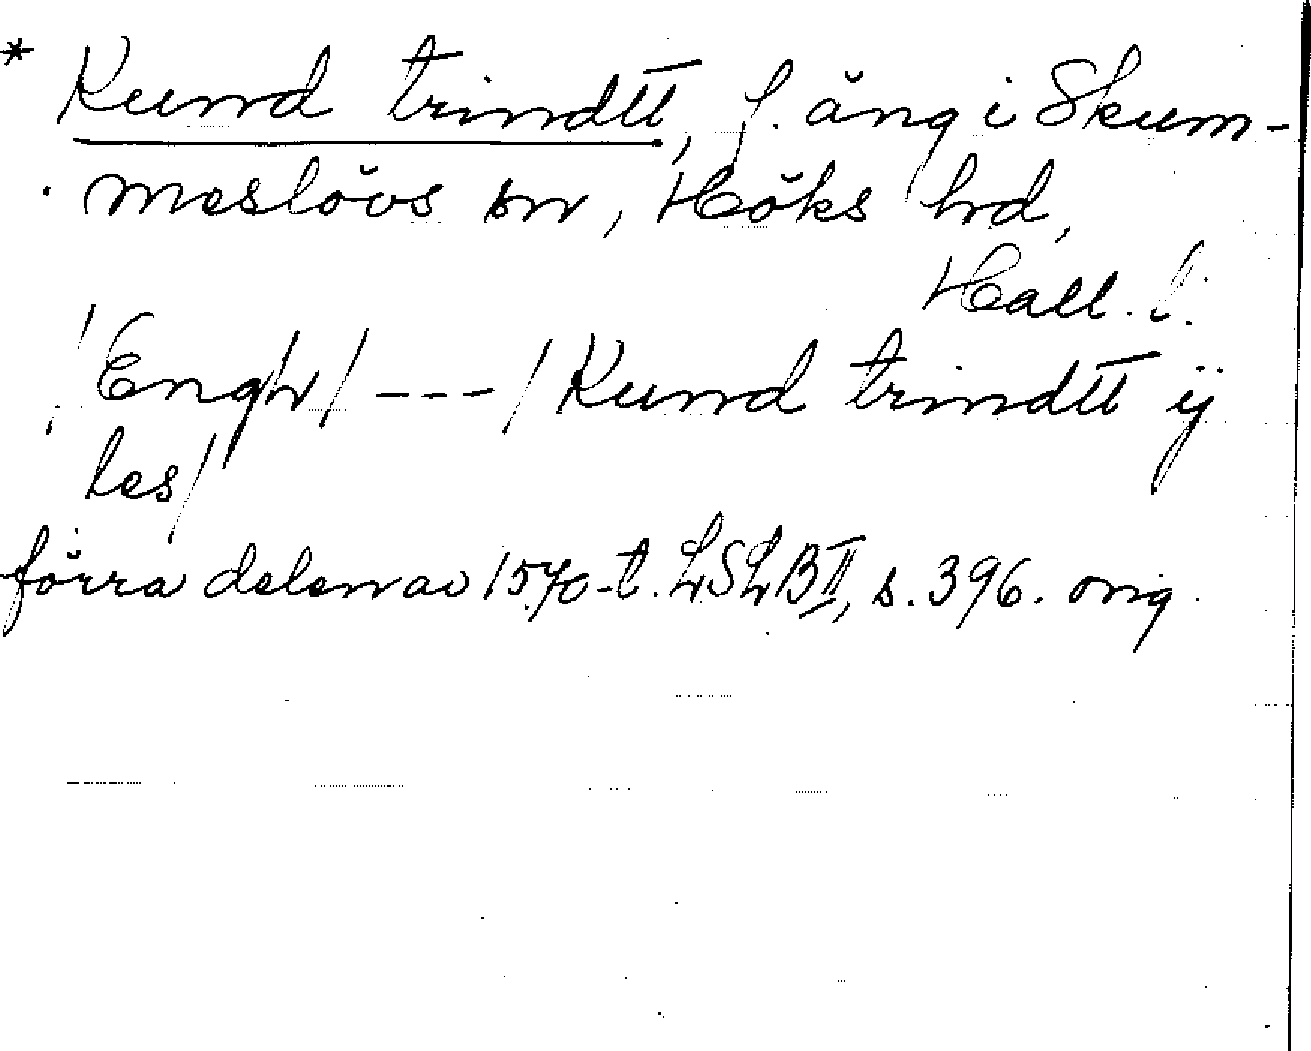 * Kund trindtt, f. äng i Skum-
meslövs sn, Höks hd,
Hall. l.
/Engh/ --- / Kund trindtt ÿ
les/
förra delen av 1570-t. LSLB II, s. 396. orig.